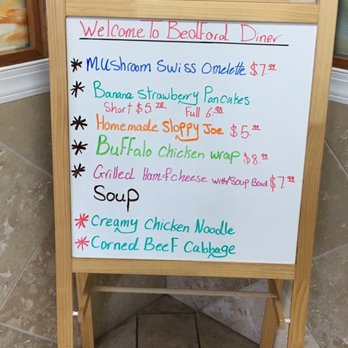 Welcome To Bedford Diner
* Mushroom Swiss Omelette $7.99
* Banana Strawberry Pancakes
Short $5. Full 6.
* Homemade Sloppy Joe $5.99
* Buffalo Chicken wrap $8.99
* Grilled Ham & cheese with Soup Bowl $7.99
Soup
* Creamy Chicken Noodle
* Corned Beef Cabbage